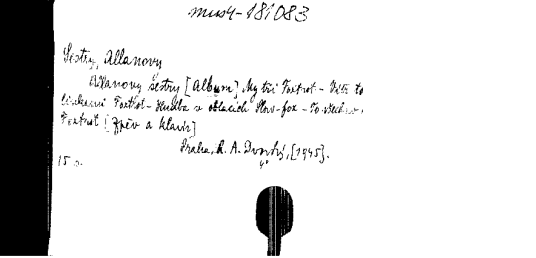 mus4-181083
Sestry, Allanovy
Allanovy sestry [Album] My tři Foxtrot - Víš to
Foxtrot - Hudba v oblacích Slow-fox - To všechno,
Foxtrot [Zpěv a klavír]
Praha, R. A. Dvorský, [1945].
4°
15 s.